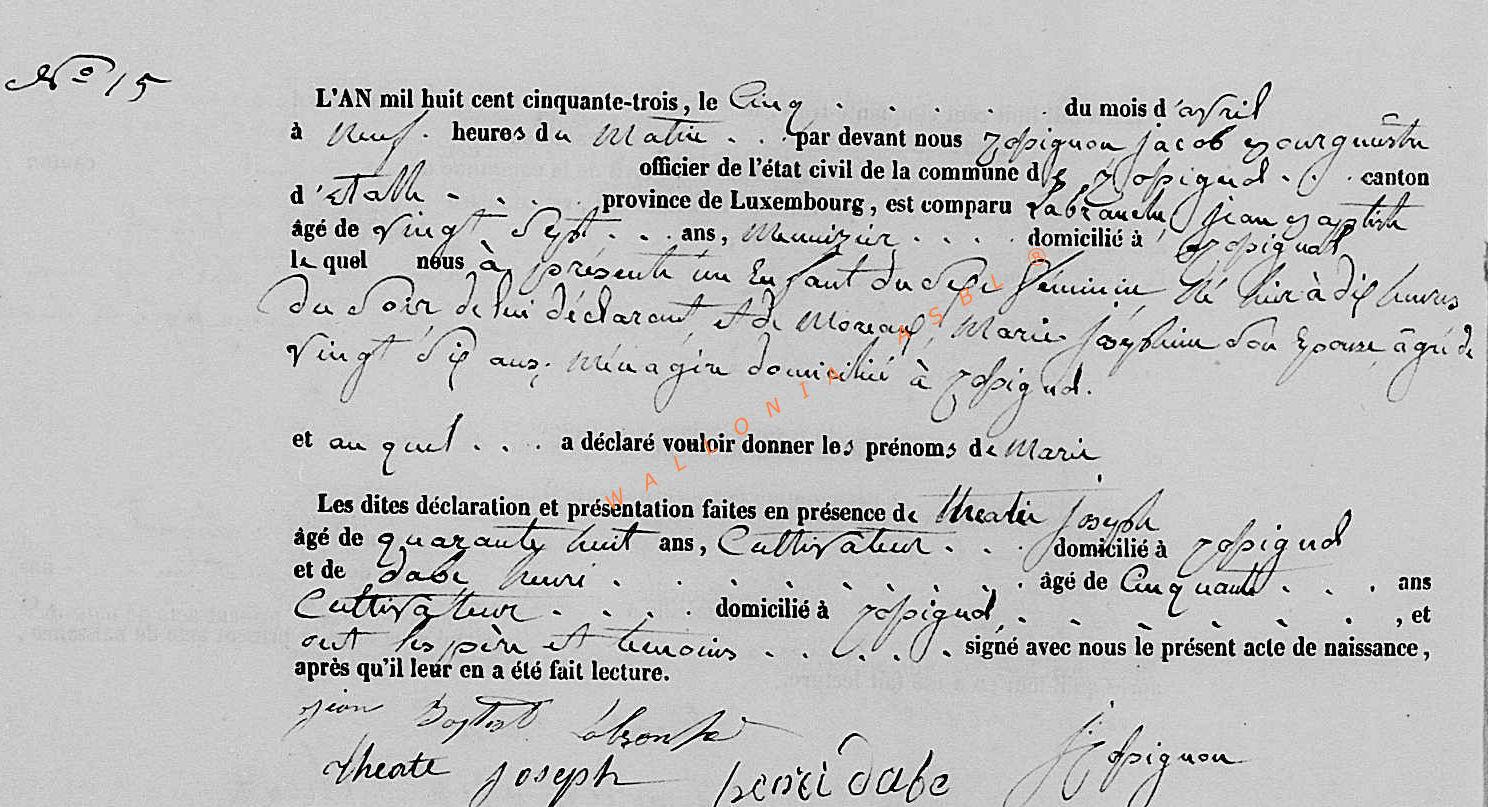 No 15
L'AN mil huit cent cinquante-trois, le Cinq . . . . . du mois d'avril
à Neuf . heures du Matin . . par devant nous Jacob Bourguèstre
officier de l'état civil de la commune de . . canton
d'Etalle . . . . province de Luxembourg, est comparu Labranche, jean Baptiste
âgé de Vingt Sept . . . ans, Menuizier . . . . domicilié à
le quel nous à présenté un Enfant du Sexe féminin Né hier à dix heures
du Soir de lui déclarant, et de Moreaux, Marie Josephine Son Epouse âgée de
Vingt Six ans, Ménagère domicilié à
et au quel . . . a déclaré vouloir donner les prénoms de Marie
Les dites déclaration et présentation faites en présence de theate Joseph
âgé de quarante huit ans, Cultivateur . . . domicilié à
et de dabe henri . . . . . . . . âgé de Cinquante . . . ans
Cultivateur . . . . domicilié à . . . . . . , et
ont les père et temoins . . . . . signé avec nous le présent acte de naissance,
après qu'il leur en a été fait lecture.
jean Baptist
theate joseph henri dabe
WALLONIA ASBL ®